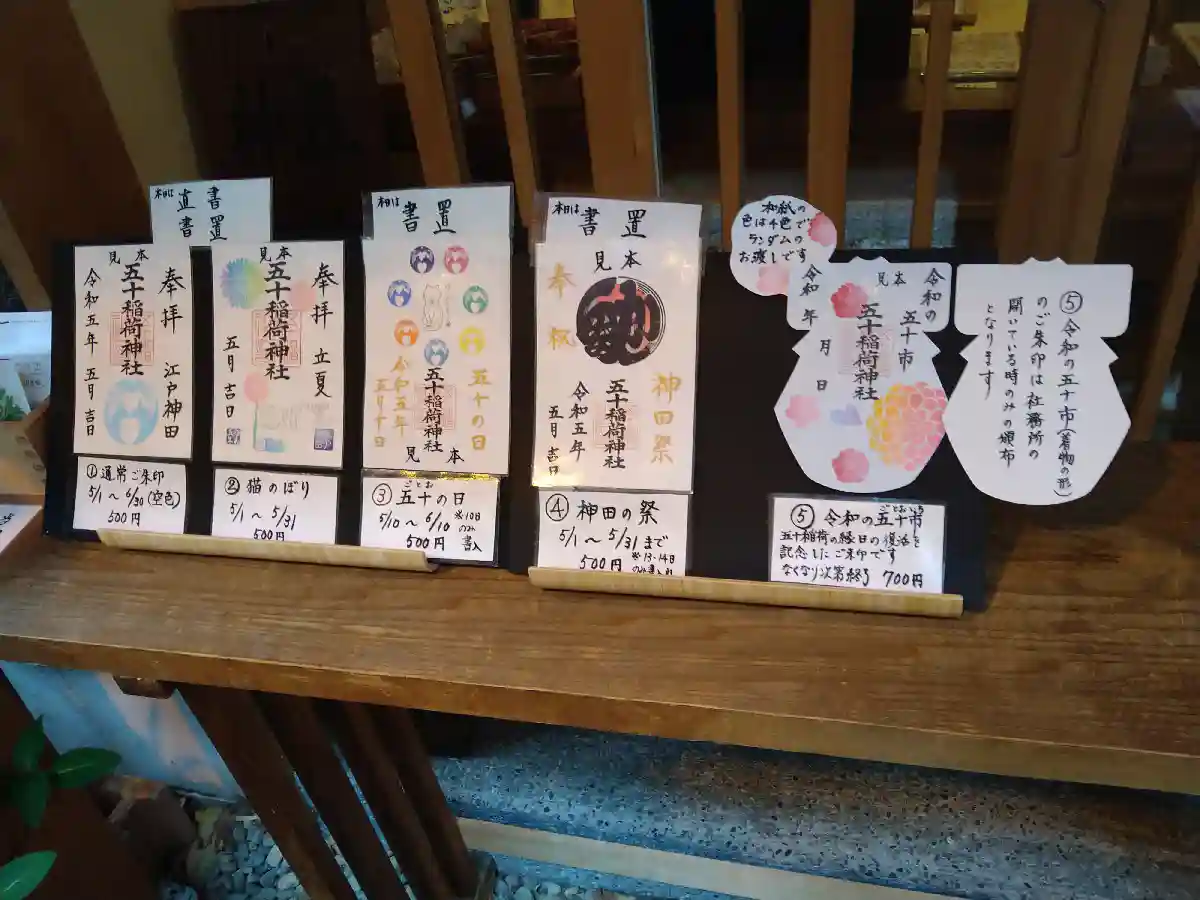 本日は
直書
書置
見本
奉拝
江戸神田
五十稲荷神社
令和五年
五月吉日
①通常ご朱印
5/1～6/30(空色)
500円
見本
奉拝
立夏
五十稲荷神社
五月吉日
②猫のぼり
5/1～5/31
500円
本日は
書置
五十の日
五十稲荷神社
令和五年
五月十日
見本
ごとお
③五十の日
5/10～6/10
※10日
のみ
書入
500円
本日は
書置
見本
奉祝
神田祭
五十稲荷神社
令和五年
五月吉日
④神田の祭
5/1～5/31まで
500円
※13・14日
和紙の
色は4色で
ランダムの
お渡しです
見本
令和の
五十市
五十稲荷神社
令和 年 月 日
ごとおいち
⑤令和の五十市
五十稲荷の縁日の復活を
記念したご朱印です
なくなり次第終了 700円
⑤令和の五十市(着物の形)
のご朱印は社務所の
開いている時のみの頒布
となります